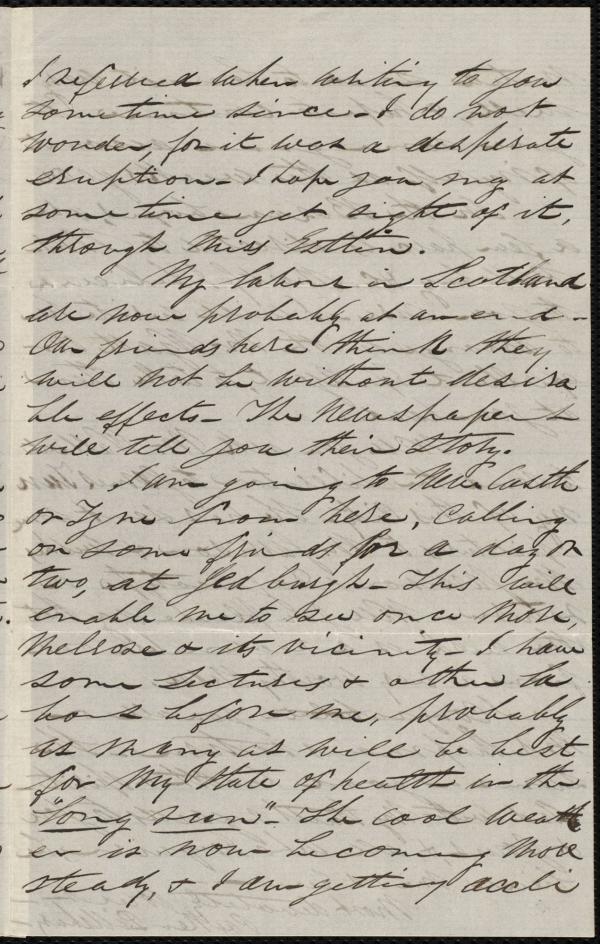 I referred when writing to you
sometime since - I do not
wonder, for it was a desperate
eruption - I hope you may at
some time get sight of it,
through Miss Estlin.
My labors in Scotland
are now probably at an end -
Our friends here think they
will not be without desira
ble effects - The Newspapers
will tell you their story.
I am going to New Castle
on Tyne from here, calling
on some friends for a day or
two, at Jedburgh - This will
enable me to see once more,
Melrose & its vicinity - I have
some Lectures & other la
bors before me, probably
as many as will be best
for my state of health in the
"long run" - The cool weath
er is now becoming more
steady, & I am getting accli